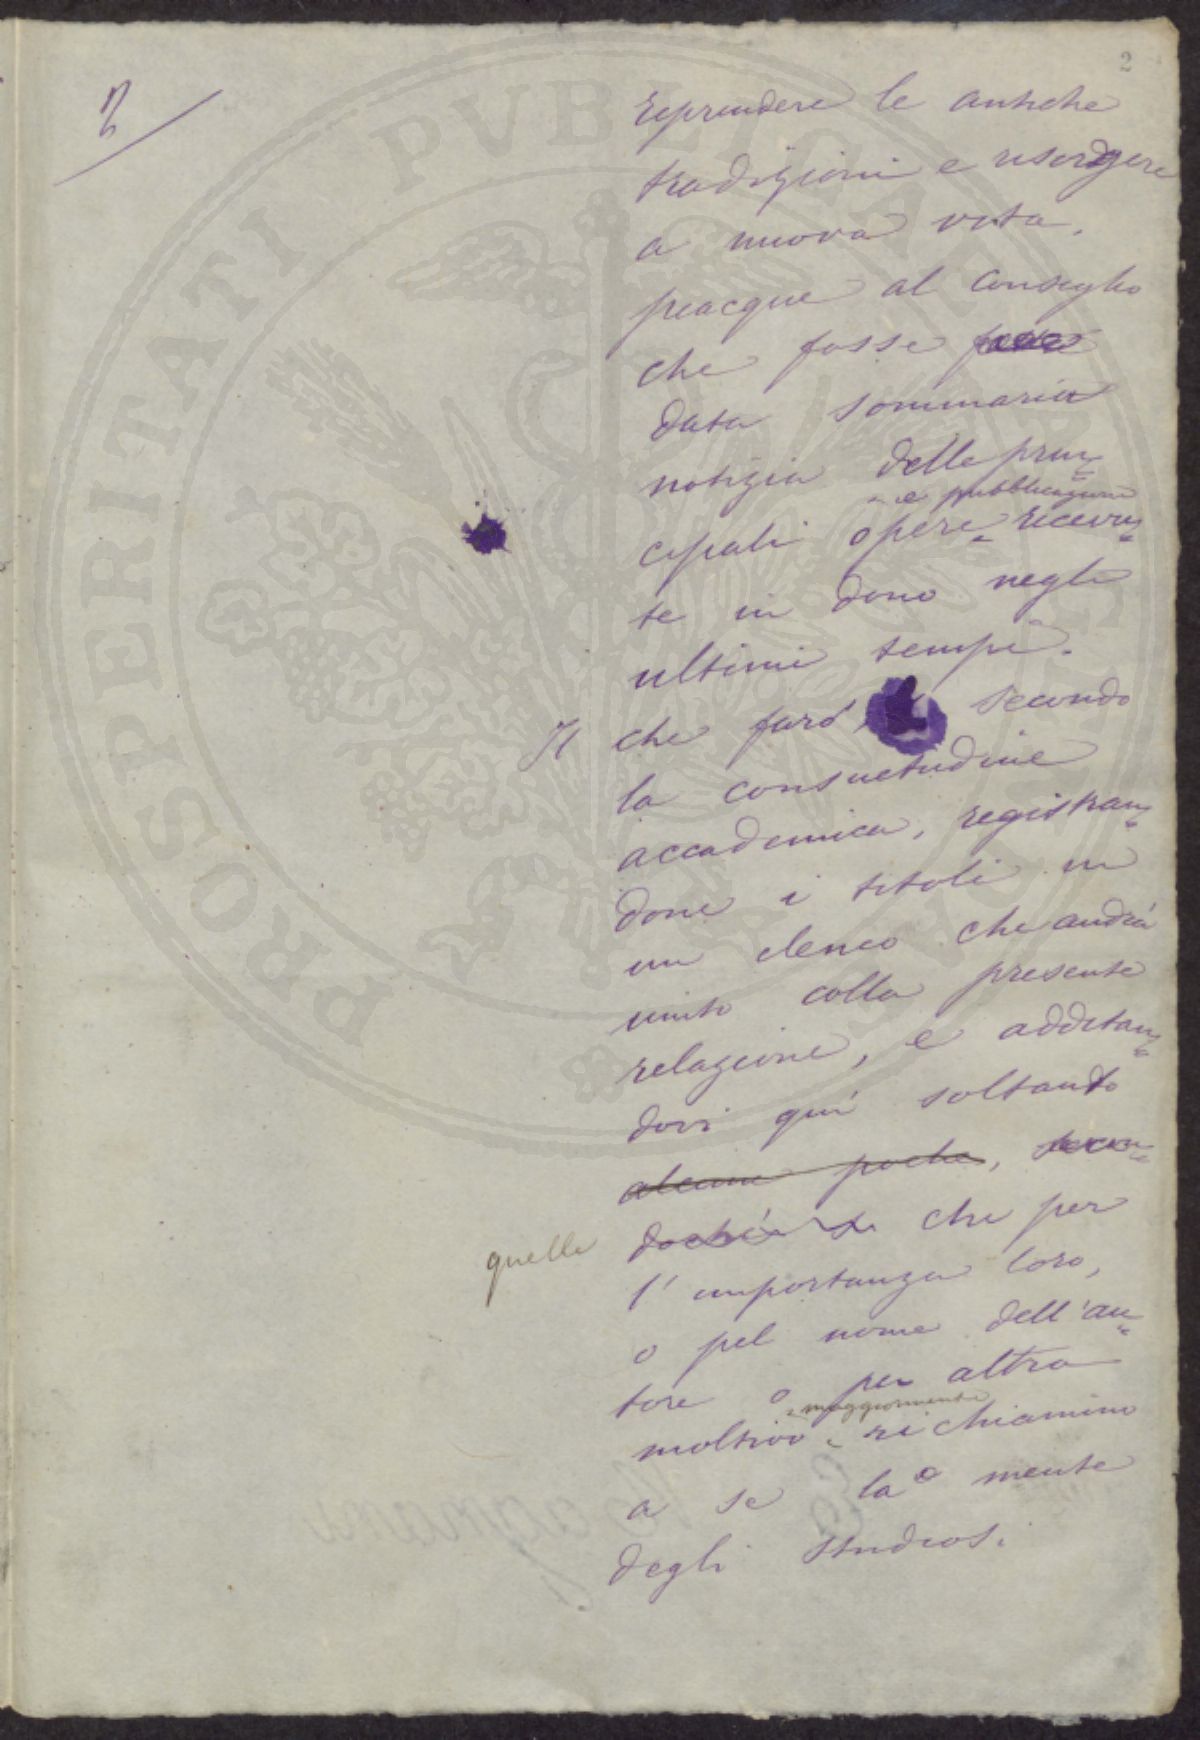 2
2
reprendere le antiche
tradizioni e risorgere
a nuova vita,
piacque al Consiglio
che fosse
data sommaria
notizia delle prin=
e pubblicazioni
cipali opere ricevu=
te in dono negli
ultimi tempi.
Il che farò secondo
la consuetudine
accademica, registran=
done i titoli in
un elenco che andrà
unito colla presente
relazione, e additan=
dovi quì soltanto
alcune poche, secon=
dochè che per
quelle
l'importanza loro,
o pel nome dell'au=
tore o per altro
maggiormente
moltivo richiamino
a se la mente
degli studiosi
PROSPERITATI PVBLICAE